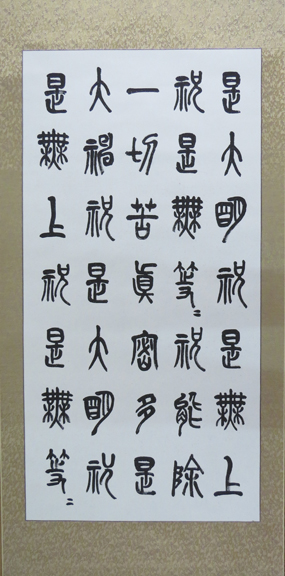 是大明祝是無上
祝是無等〻祝能除
一切苦眞密多是
大禍祝是大明祝
是無上祝是無等〻